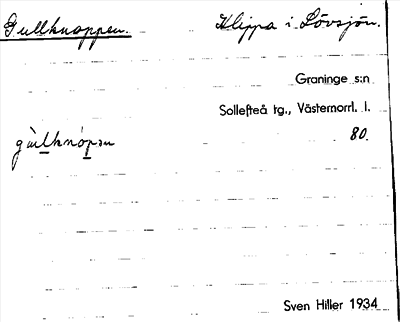 Gullknappen. Klippa i Lövsjön.
Graninge s:n
Sollefteå tg., Västernorrl. l.
80.
Sven Hiller 1934